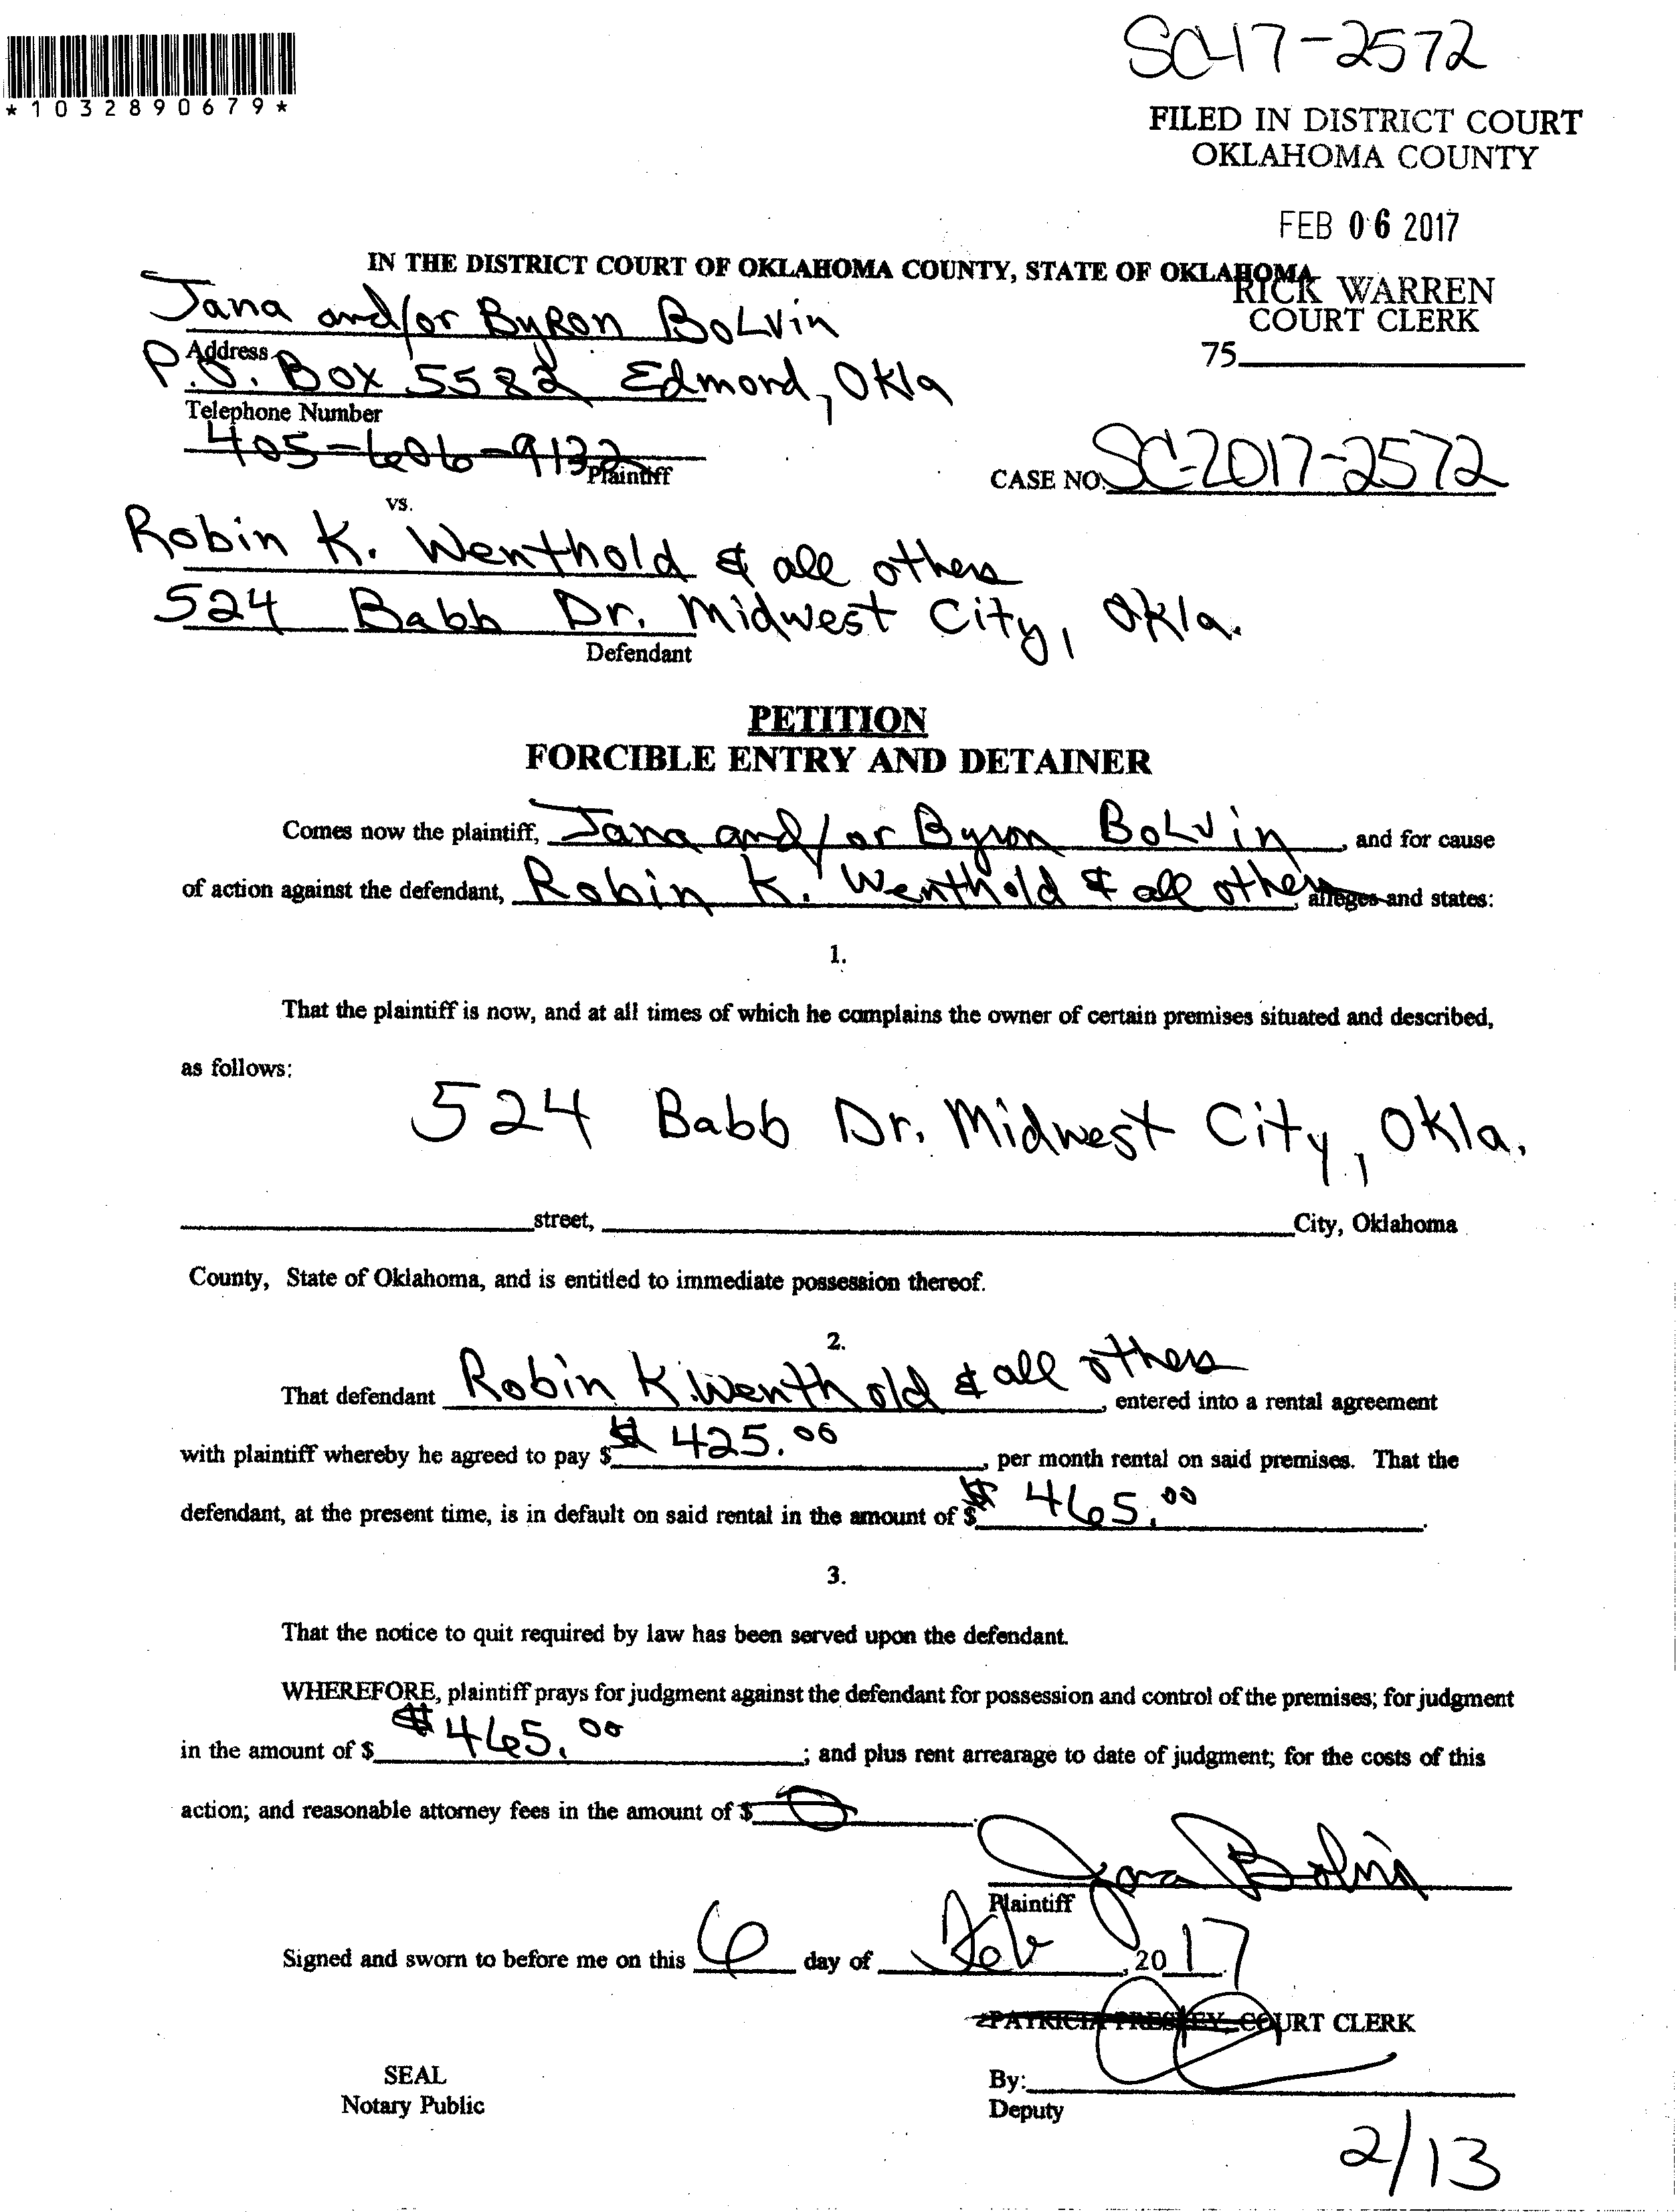 SC-17-2572
*1032890679*
FILED IN DISTRICT COURT
OKLAHOMA COUNTY
FEB 06 2017
IN THE DISTRICT COURT OF OKLAHOMA COUNTY, STATE OF OKLAHOMA
RICK WARREN
COURT CLERK
75
Jana and/or Byron BoLvin
Address
P.O. Box 5582 Edmond, Okla
Telephone Number
405-606-9132
Plaintiff
CASE NO. SC-2017-2572
vs.
Robin K. Wenthold & all others
524 Babb Dr. Midwest City, Okla.
Defendant
PETITION
FORCIBLE ENTRY AND DETAINER
Comes now the plaintiff, Jana and/or Byron BoLvin, and for cause
of action against the defendant, Robin K. Wenthold & all others, alleges and states:
1.
That the plaintiff is now, and at all times of which he complains the owner of certain premises situated and described,
as follows:
524 Babb Dr. Midwest City, Okla.
street, City, Oklahoma
County, State of Oklahoma, and is entitled to immediate possession thereof.
2.
That defendant Robin K. Wenthold & all others, entered into a rental agreement
with plaintiff whereby he agreed to pay $ $ 425.00, per month rental on said premises. That the
defendant, at the present time, is in default on said rental in the amount of $ $ 465.00.
3.
That the notice to quit required by law has been served upon the defendant.
WHEREFORE, plaintiff prays for judgment against the defendant for possession and control of the premises; for judgment
in the amount of $ $465.00; and plus rent arrearage to date of judgment; for the costs of this
action; and reasonable attorney fees in the amount of $ 0.
Jana Bolvin
Plaintiff
Signed and sworn to before me on this 6 day of Feb, 2017.
PATRICIA PRESLEY, COURT CLERK
SEAL
Notary Public
By:
Deputy
2/13